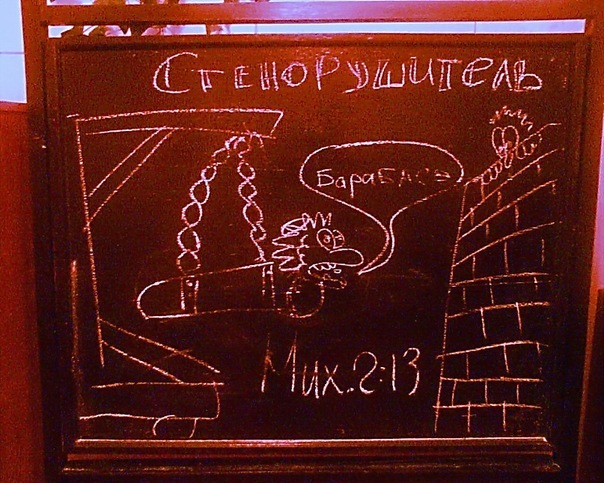 Стенорушитель
Мих.2:13